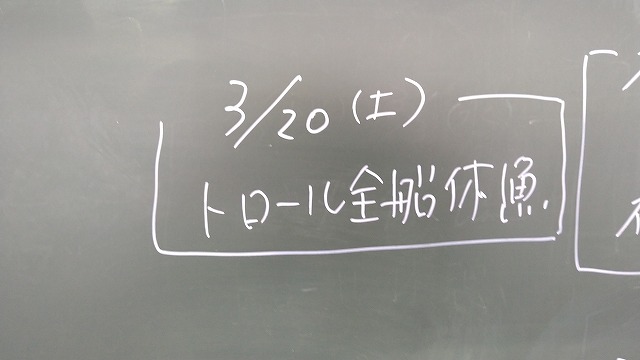 3/20(土)
トロール全船休漁.